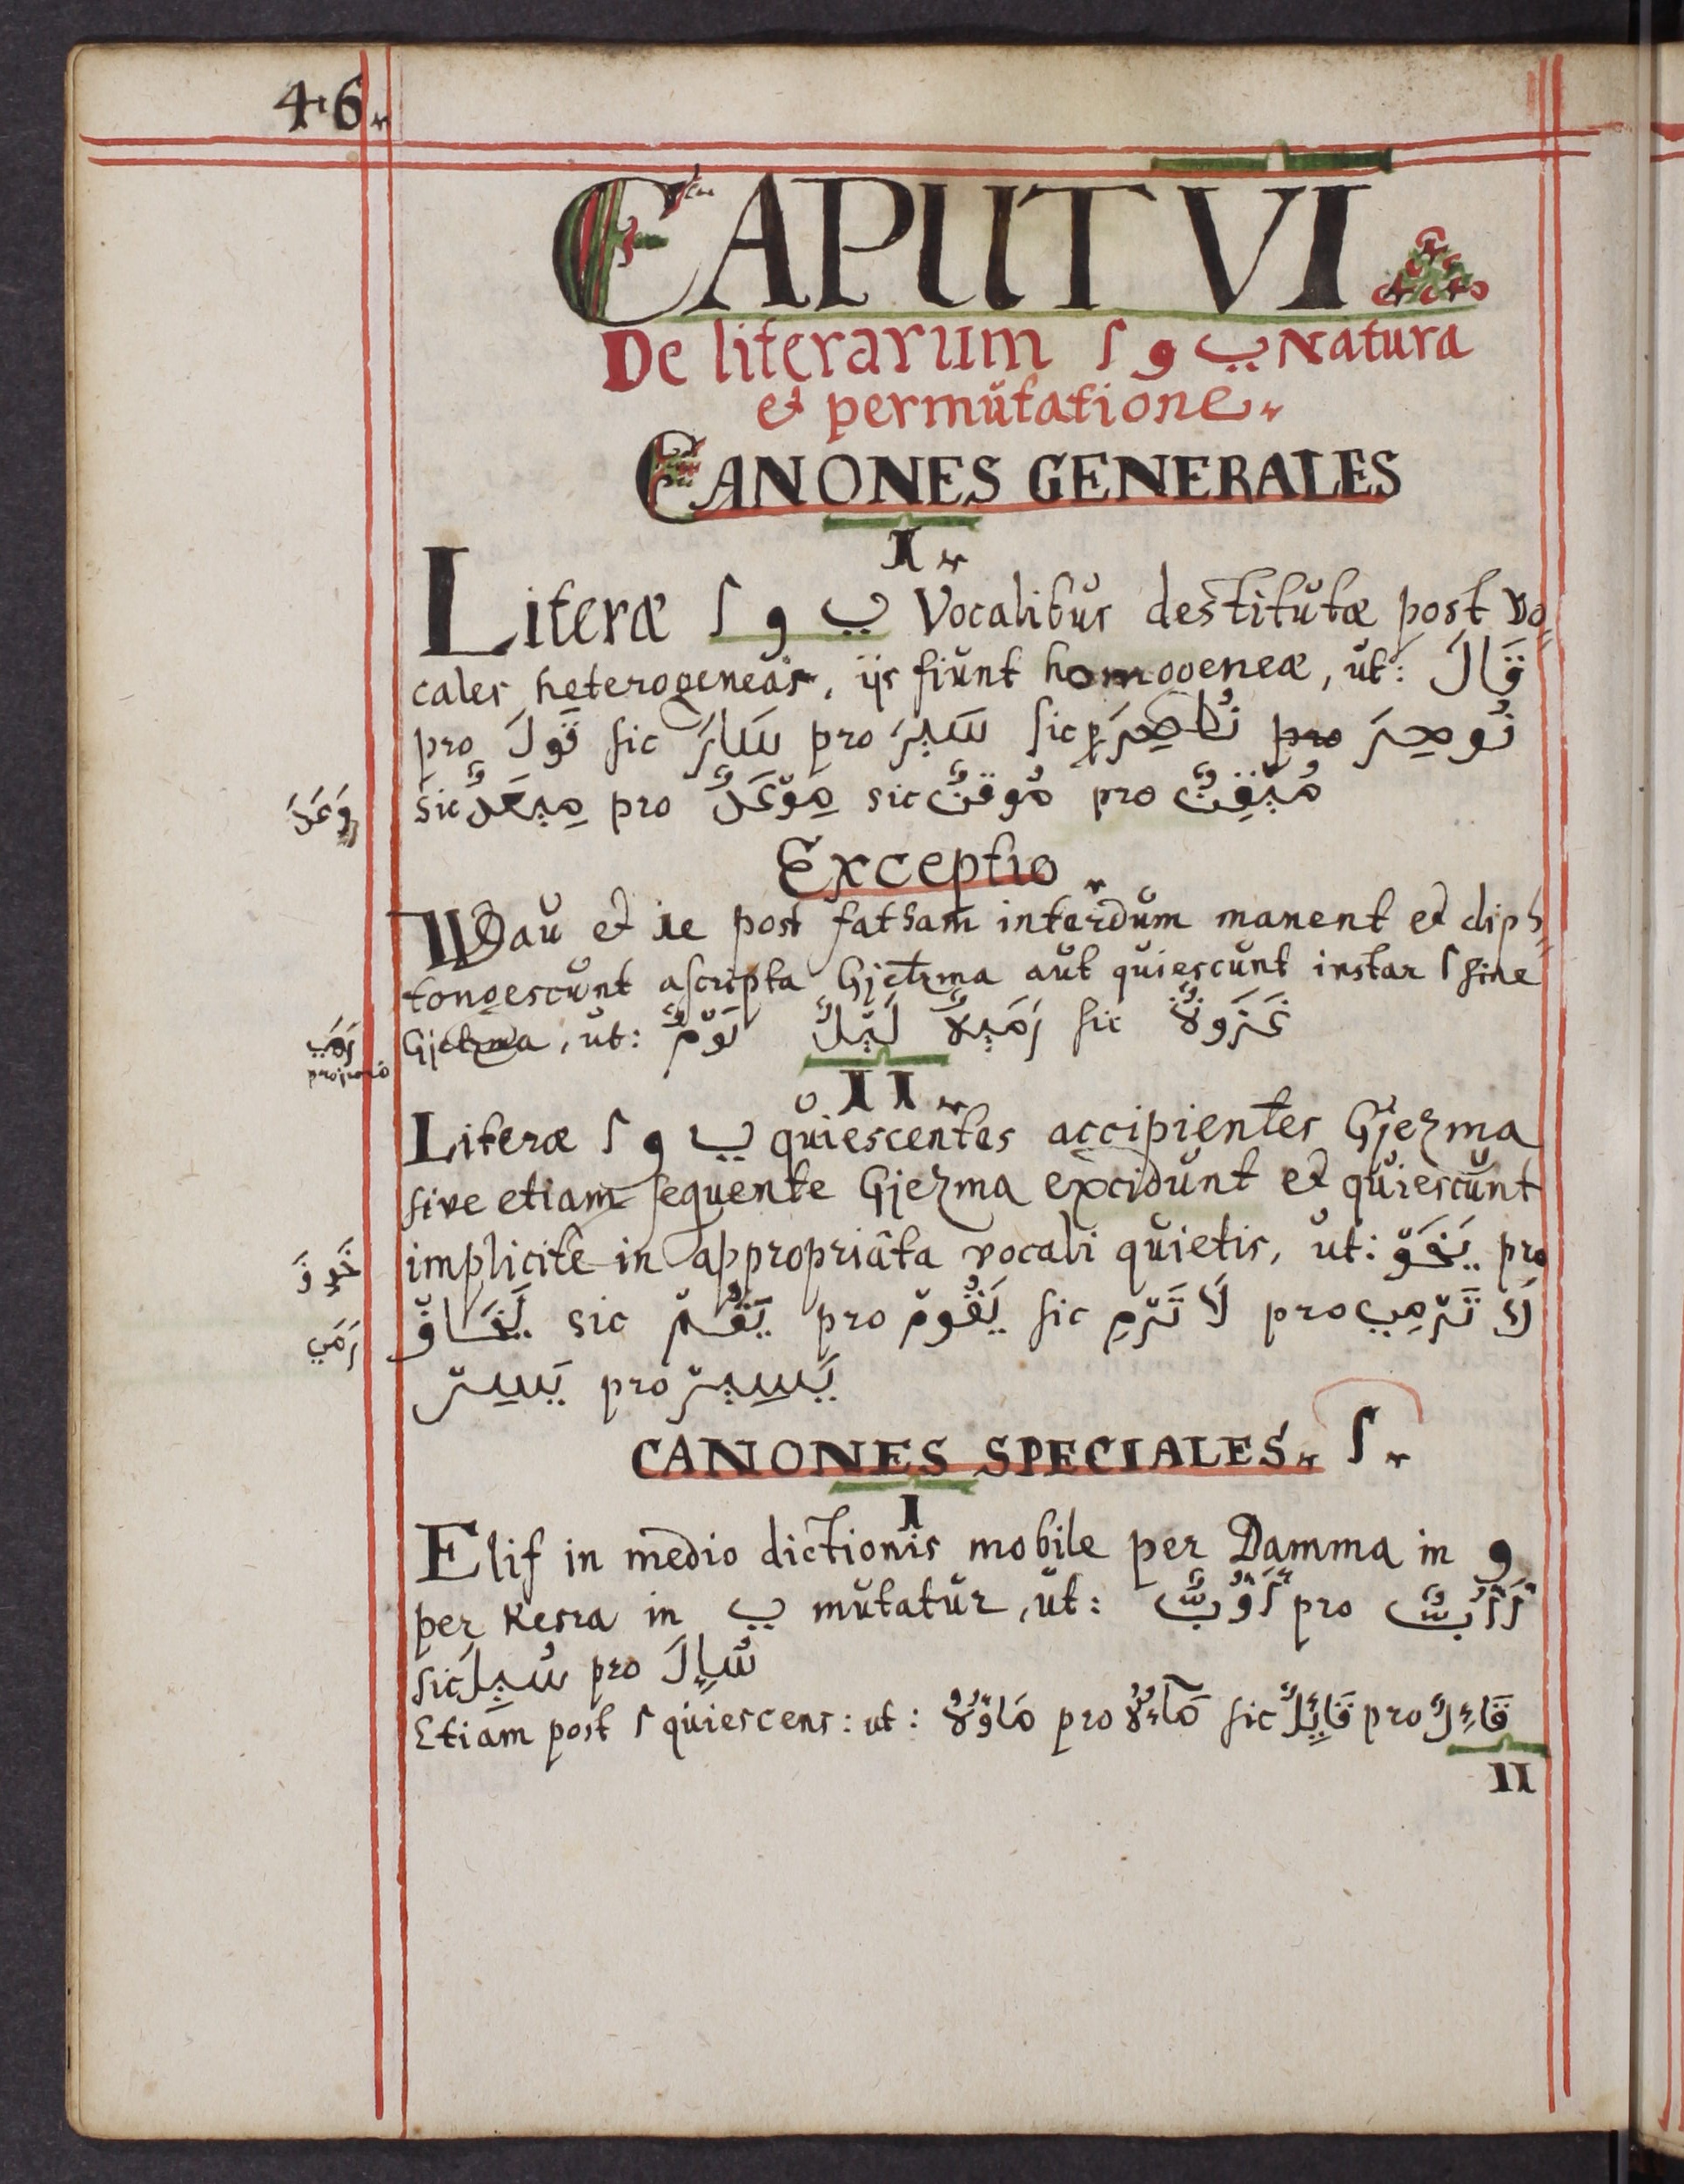 46.
CAPUT VI
De literarum ا و ي Natura
et permutatione.
CANONES GENERALES
I.
Literæ ا و ي Vocalibus destitutæ post vo
cales heterogeneas, ijs fiunt homogeneæ, ut: قَالَ
pro قَوَلَ sic سَارَ pro سَيَرَ sic نُوصِرَ pro نُاصِرَ
وَعَدَ
sic مِيعَدٌ pro مِوْعَدٌ sic مُوقِنٌ pro مُيْقِنٌ
Exceptio.
Wau et ie post fatham interdum manent et diph
tongescunt ascripta Gjezma aut quiescunt instar ا sine
رَمَي
Gjezma, ut: يَوْمٌ لَيْلٌ رَمَيلاٌ sic غَزَولاٌ
II.
Literæ ا و ي quiescentes accipientes Gjezma
sive etiam sequente Gjezma excidunt et quiescunt
خَوِفَ
implicite in appropriâta vocali quietis, ut: يَخَفْ pro
رَمَي
يَخَافْ sic يَقُمْ pro يَقُومْ sic لَا تَرْمِ pro لَا تَرْمِي
يَسِرْ pro يَسِيرْ
CANONES SPECIALES. ا.
I
Elif in medio dictionis mobile per Damma in و
per Kesra in ي mutatur, ut: أَوُبٌّ pro أَأُبٌّ
sic سُيِلَ pro سُاِلَ
Etiam post ا quiescens: ut: مَاوُلاٌ pro sic قَايِلٌ pro قَاءِلٌ
II